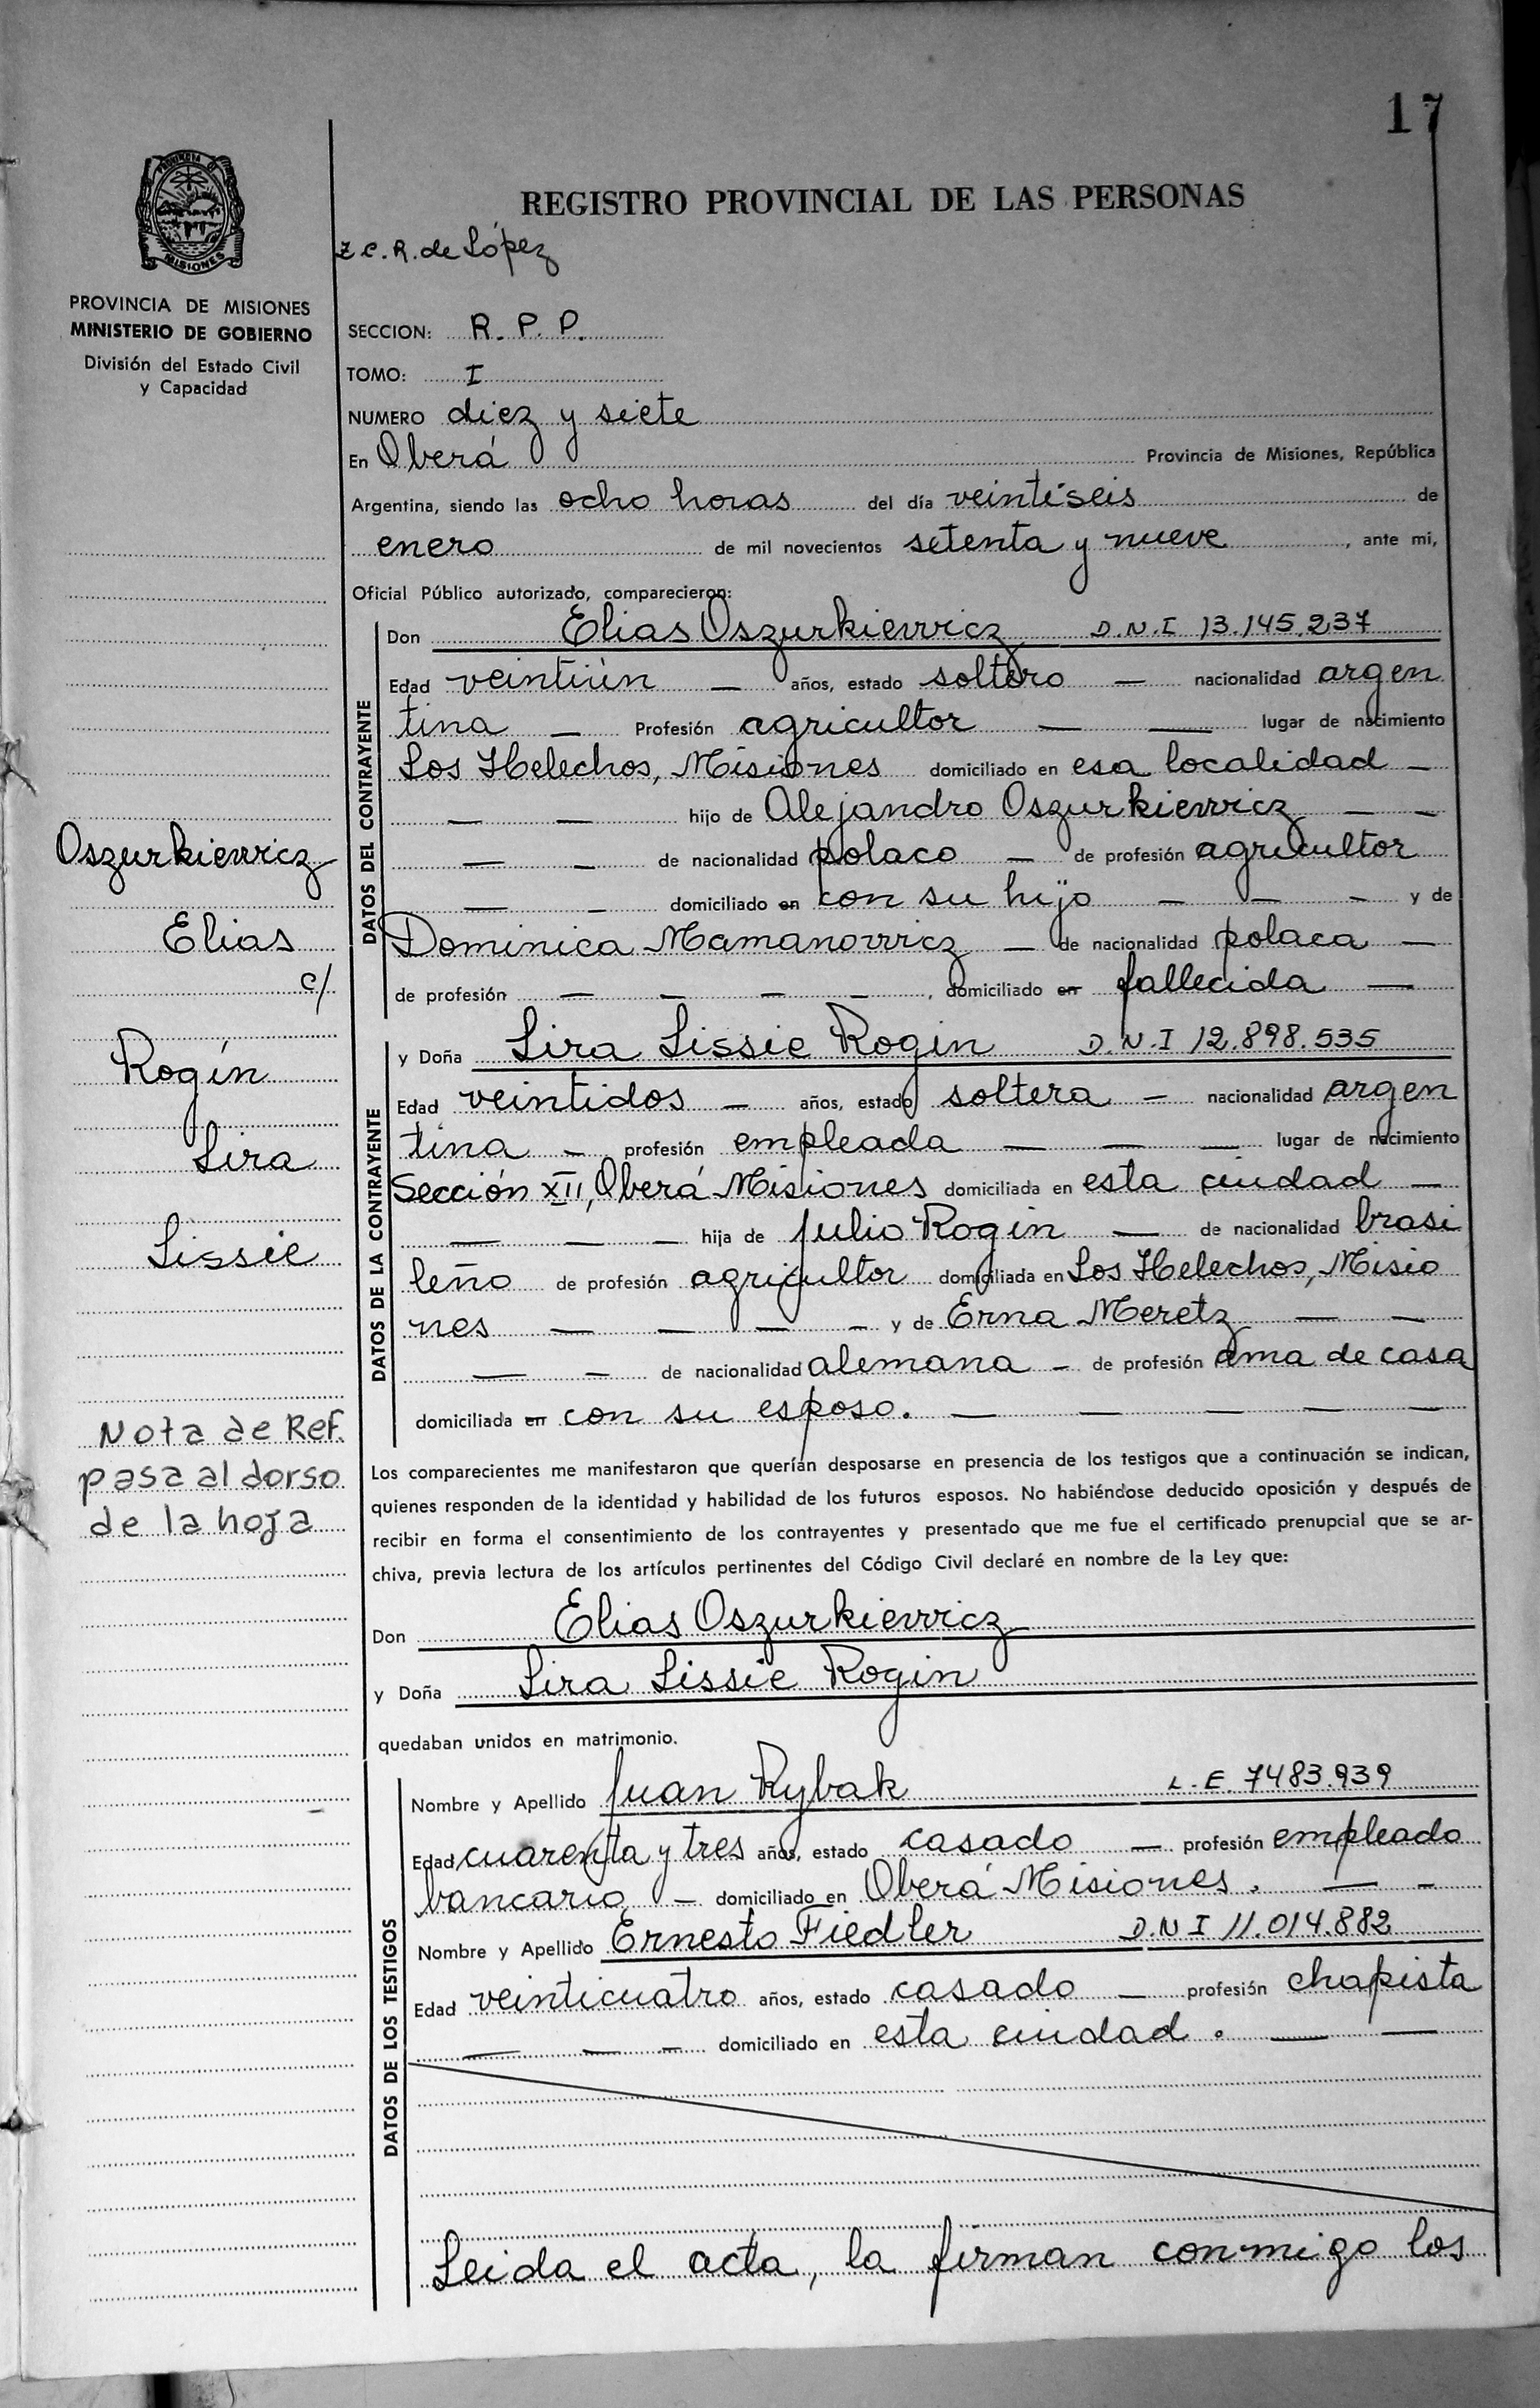 17
PROVINCIA DE
MISIONES
PROVINCIA DE MISIONES
MINISTERIO DE GOBIERNO
División del Estado Civil
y Capacidad
REGISTRO PROVINCIAL DE LAS PERSONAS
Z C. R. de López
SECCION: R. P. P.
TOMO: I
NUMERO diez y siete
En Oberá Provincia de Misiones, República
Argentina, siendo las ocho horas del día veintiseis de
enero de mil novecientos setenta y nueve, ante mi,
Oficial Público autorizado, comparecieron:
DATOS DEL CONTRAYENTE
Don Elias Oszurkiewicz D.N.I 13.145.237
Edad veintiún — años, estado soltero — nacionalidad argen
tina — Profesión agricultor — — lugar de nacimiento
Los Helechos, Misiones domiciliado en esa localidad —
— — hijo de Alejandro Oszurkiewicz — —
— — de nacionalidad polaco — de profesión agricultor
— — domiciliado en con su hijo — — — y de
Dominica Mamanowicz — de nacionalidad polaca —
de profesión — — — —, domiciliado en fallecida —
DATOS DE LA CONTRAYENTE
y Doña Lira Lissie Rogin D.N.I 12.898.535
Edad veintidos — años, estado soltera — nacionalidad argen
tina — profesión empleada — — — lugar de nacimiento
Sección XII, Oberá Misiones domiciliada en esta ciudad —
— — — hija de Julio Rogin — de nacionalidad brasi
leño de profesión agricultor domiciliada en Los Helechos, Misio
nes — — — — y de Erna Meretz — —
— — de nacionalidad alemana — de profesión ama de casa
domiciliada en con su esposo. — — — — —
Los comparecientes me manifestaron que querían desposarse en presencia de los testigos que a continuación se indican,
quienes responden de la identidad y habilidad de los futuros esposos. No habiéndose deducido oposición y después de
recibir en forma el consentimiento de los contrayentes y presentado que me fue el certificado prenupcial que se ar-
chiva, previa lectura de los artículos pertinentes del Código Civil declaré en nombre de la Ley que:
Don Elias Oszurkiewicz
y Doña Lira Lissie Rogin
quedaban unidos en matrimonio.
DATOS DE LOS TESTIGOS
Nombre y Apellido Juan Rybak L.E. 7483.939
Edad cuarenta y tres años, estado casado — profesión empleado
bancario — domiciliado en Oberá Misiones. — —
Nombre y Apellido Ernesto Fiedler D.N I 11.014.882
Edad veinticuatro años, estado casado — profesión chapista
— — — domiciliado en esta ciudad. — —
Leida el acta, la firman conmigo los
Oszurkiewicz
Elias
c/
Rogín
Lira
Lissie
Nota de Ref.
pasa al dorso
de la hoja